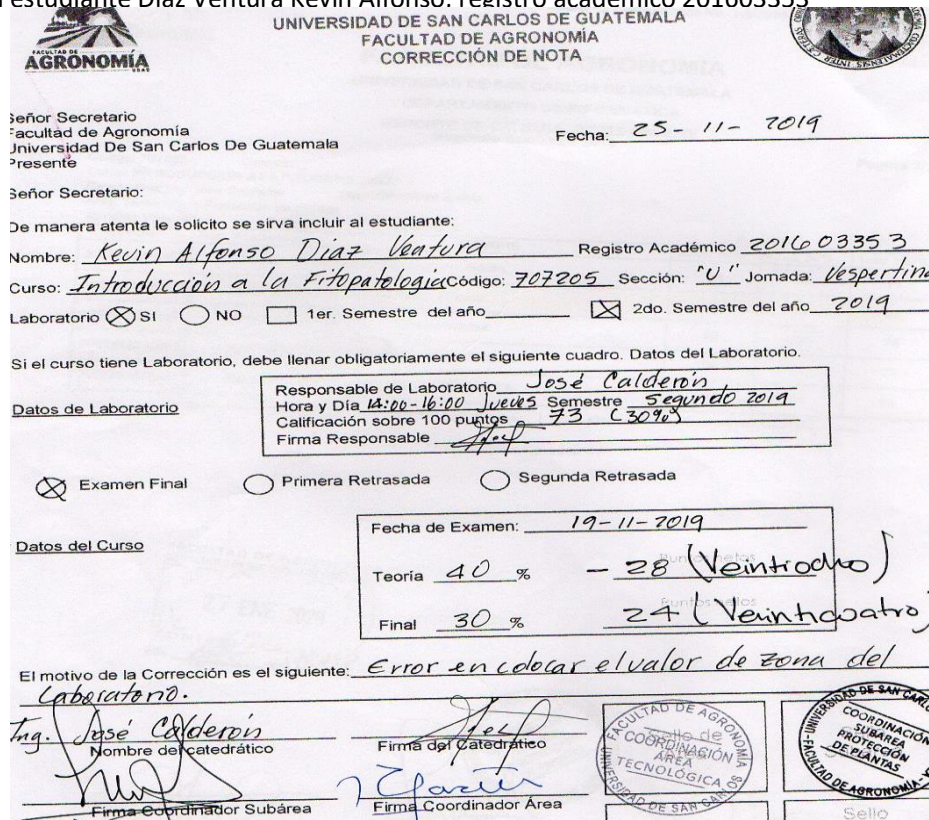 estudiante Diaz Ventura Kevin Alfonso. registro academico 201603353
UNIVERSIDAD DE SAN CARLOS DE GUATEMALA
FACULTAD DE AGRONOMÍA
CORRECCIÓN DE NOTA
FACULTAD DE
AGRONOMÍA
Señor Secretario
Facultad de Agronomía
Universidad De San Carlos De Guatemala
Presente
Fecha: 25-11-2019
Señor Secretario:
De manera atenta le solicito se sirva incluir al estudiante:
Nombre: Kevin Alfonso Diaz Ventura Registro Académico 201603353
Curso: Introducción a la Fitopatologia Código: 707205 Sección: "U" Jornada: Vespertina
Laboratorio SI NO 1er. Semestre del año 2do. Semestre del año 2019
Si el curso tiene Laboratorio, debe llenar obligatoriamente el siguiente cuadro. Datos del Laboratorio.
Datos de Laboratorio
Responsable de Laboratorio José Calderón
Hora y Día 14:00-16:00 Jueves Semestre Segundo 2019
Calificación sobre 100 puntos 73 (30%)
Firma Responsable
Examen Final Primera Retrasada Segunda Retrasada
Datos del Curso
Fecha de Examen: 19-11-2019
Teoría 40 % - 28 (Veintiocho)
Final 30 % 24 (Veinticuatro)
El motivo de la Corrección es el siguiente: Error en colocar el valor de zona del
Laboratorio.
Ing. José Calderón
Nombre del catedrático Firma del Catedrático
Firma Coordinador Subárea Firma Coordinador Área
FACULTAD DE AGRONOMÍA
COORDINACIÓN
ÁREA
TECNOLÓGICA
UNIVERSIDAD DE SAN CARLOS
UNIVERSIDAD DE SAN CARLOS
COORDINACIÓN
SUBAREA
PROTECCIÓN
DE PLANTAS
FACULTAD DE AGRONOMIA
Sello